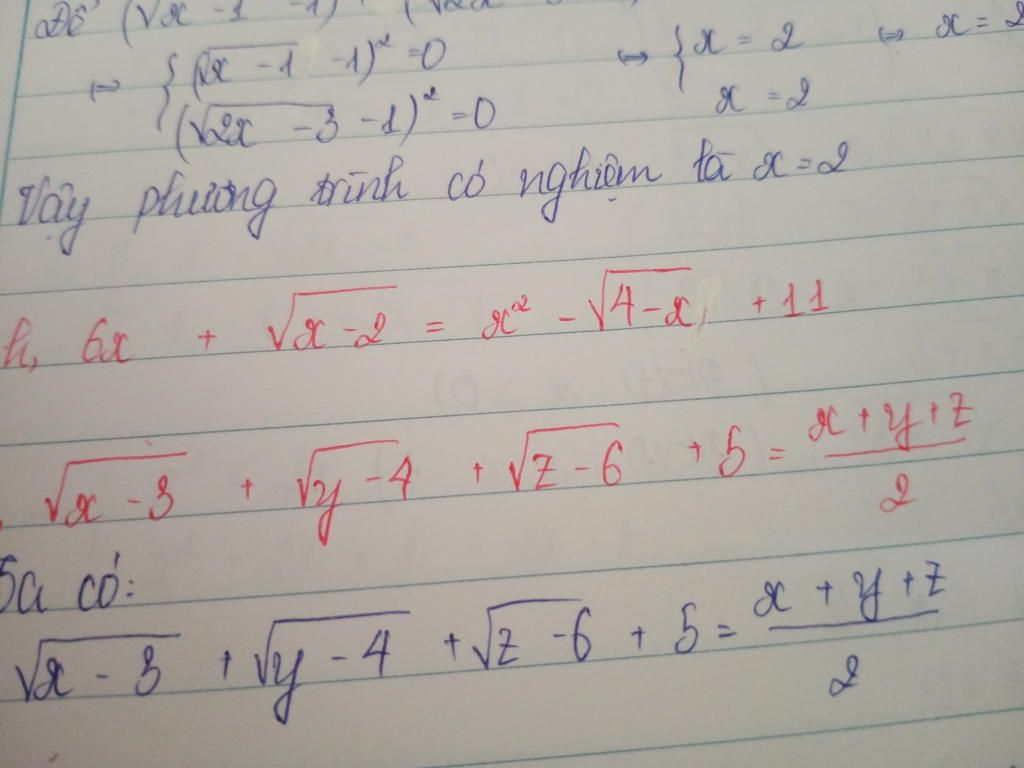 Để (√x - 1 - 1)² (√2x
⇔ { (√x - 1 - 1)² = 0 ⇔ { x = 2 ⇔ x = 2
(√2x - 3 - 1)² = 0 x = 2
Vậy phương trình có nghiệm là x = 2
h, 6x + √x - 2 = x² - √4 - x + 11
√x - 3 + √y - 4 + √z - 6 + 5 = x + y + z / 2
Ta có:
√x - 3 + √y - 4 + √z - 6 + 5 = x + y + z / 2